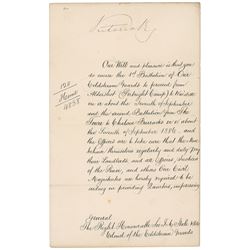 Victoria R
Our Will and pleasure is that you
do cause the 1st Battalion of Our
Coldstream Guards to proceed from
Aldershot
on or about the Seventh of September
and the second Battalion from The
Tower to Chelsea Barracks on or about
the Seventh of September 188
and the Officers are to take care that the Men
behave themselves regularly and duly pay
their Landlords and all Officers
of the Peace, and others Our Civil
Magistrates are hereby required to be
aiding in providing Quarters, impressing
Home
General
The Right Honourable Sir
Colonel of the Coldstream Guards